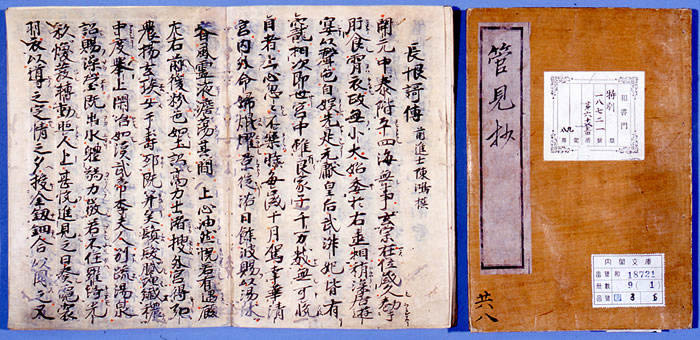 長恨謌傳 前進士陳鴻撰
開元中泰階平四海無事玄宗在位歳久勌于
旰食宵衣政無小大始委於右丞相稍深居遊
宴以聲色自娯先是元獻皇后武淑妃皆有
寵相次即世宮中雖良家子千万數無可悦
目者上心忽々不樂時毎歳十月駕幸華清
宮内外命婦熠燿景從浴日餘波賜以湯沐
春風靈液澹蕩其間上心油然恍若有遇顧
左右前後粉色如土詔高力士潜搜外宮得弘
農楊玄琰女于壽邸既笄矣鬢髮膩理繊穠
中度擧止閑冶如漢武帝李夫人別疏湯泉
詔賜澡瑩既出水體弱力微若不任羅綺光
彩煥發轉動照人上甚悦進見之日奏霓裳
羽衣以導之定情之夕授金釵鈿合以固之又
管見抄
和書門
特別
一八七二一
共八
内閣文庫
番號 和 18721
冊數 9(1)
函號